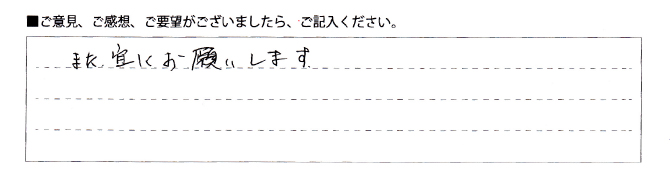 ■ご意見、ご感想、ご要望がございましたら、ご記入ください。
また宜しくお願いします